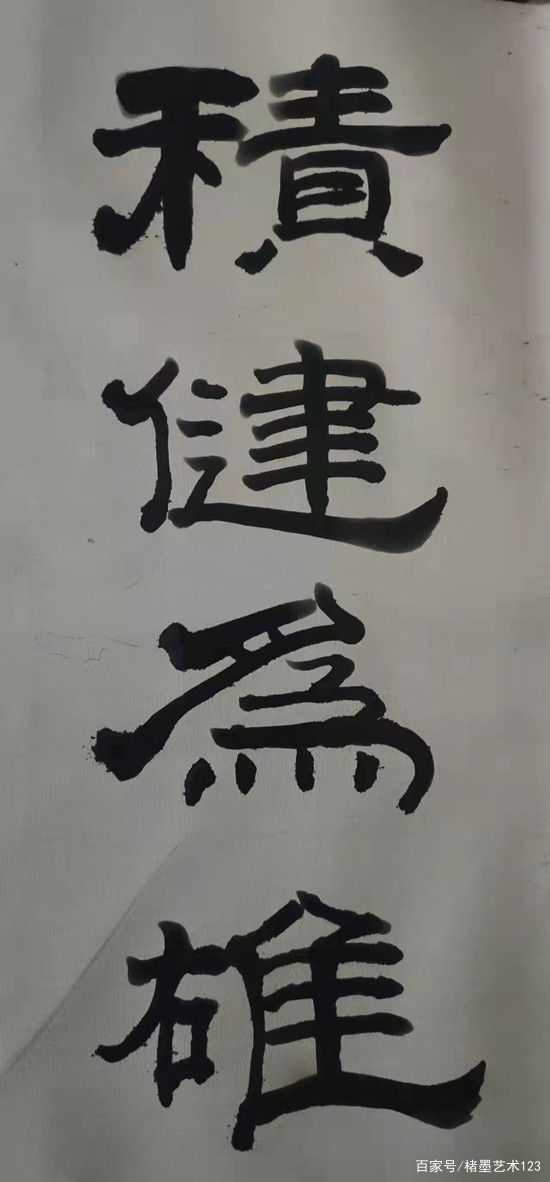 積健為雄
百家号/楮墨艺术123